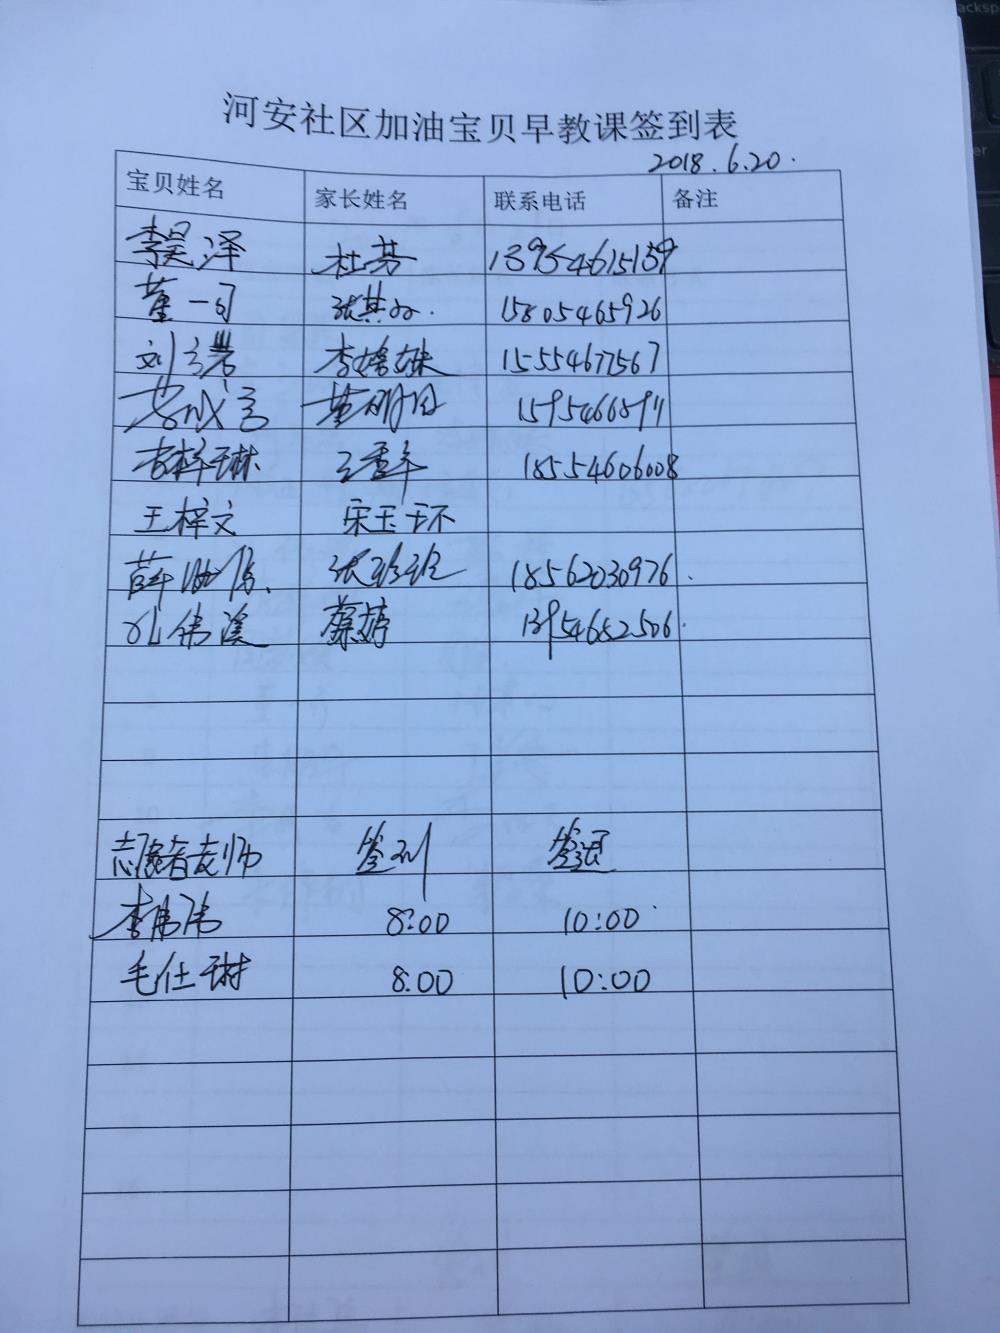 河安社区加油宝贝早教课签到表
2018.6.20.
宝贝姓名 家长姓名 联系电话 备注
李昊泽 杜芬 13954615159
董一 张其 15805465926
刘 李 15554677567
董明月
吉梓琳 王 18554606008
王梓文 宋玉环
薛 张珍珍 18562030976
伟溪 蔡婷 13954652506
志愿者老师 签到 签退
李伟伟 8:00 10:00
毛仕琳 8:00 10:00